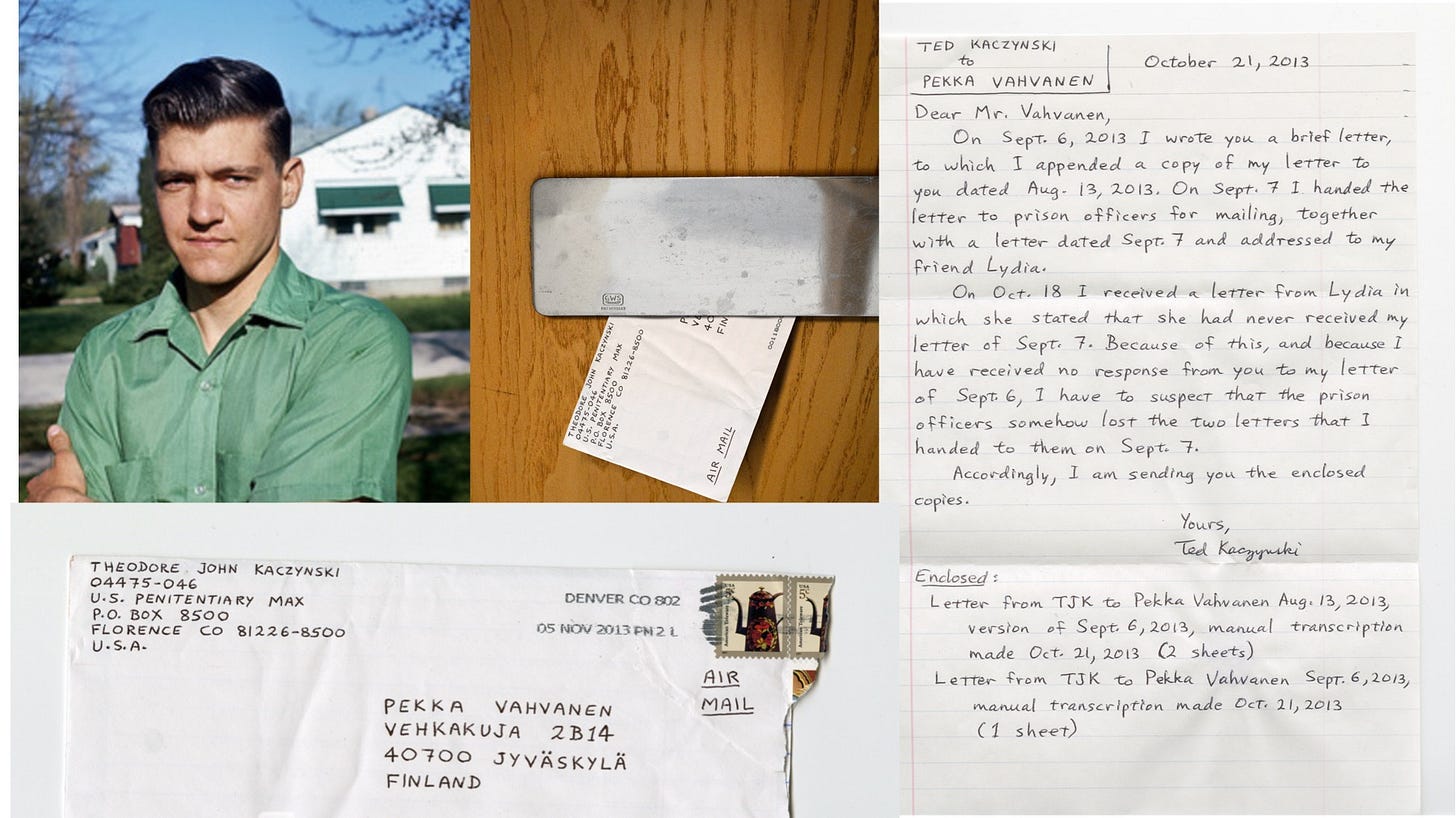 THEODORE JOHN KACZYNSKI
04475-046
U.S. PENITENTIARY MAX
P.O. BOX 8500
FLORENCE CO 81226-8500
U.S.A.
AIR MAIL
GWS
TED KACZYNSKI
to
PEKKA VAHVANEN
October 21, 2013
Dear Mr. Vahvanen,
On Sept. 6, 2013 I wrote you a brief letter,
to which I appended a copy of my letter to
you dated Aug. 13, 2013. On Sept. 7 I handed the
letter to prison officers for mailing, together
with a letter dated Sept. 7 and addressed to my
friend Lydia.
On Oct. 18 I received a letter from Lydia in
which she stated that she had never received my
letter of Sept. 7. Because of this, and because I
have received no response from you to my letter
of Sept. 6, I have to suspect that the prison
officers somehow lost the two letters that I
handed to them on Sept. 7.
Accordingly, I am sending you the enclosed
copies.
Yours,
Ted Kaczynski
Enclosed:
Letter from TJK to Pekka Vahvanen Aug. 13, 2013,
version of Sept. 6, 2013, manual transcription
made Oct. 21, 2013 (2 sheets)
Letter from TJK to Pekka Vahvanen Sept. 6, 2013,
manual transcription made Oct. 21, 2013
(1 sheet)
THEODORE JOHN KACZYNSKI
04475-046
U.S. PENITENTIARY MAX
P.O. BOX 8500
FLORENCE CO 81226-8500
U.S.A.
DENVER CO 802
05 NOV 2013 PM 2 L
AIR
MAIL
PEKKA VAHVANEN
VEHKAKUJA 2B14
40700 JYVÄSKYLÄ
FINLAND